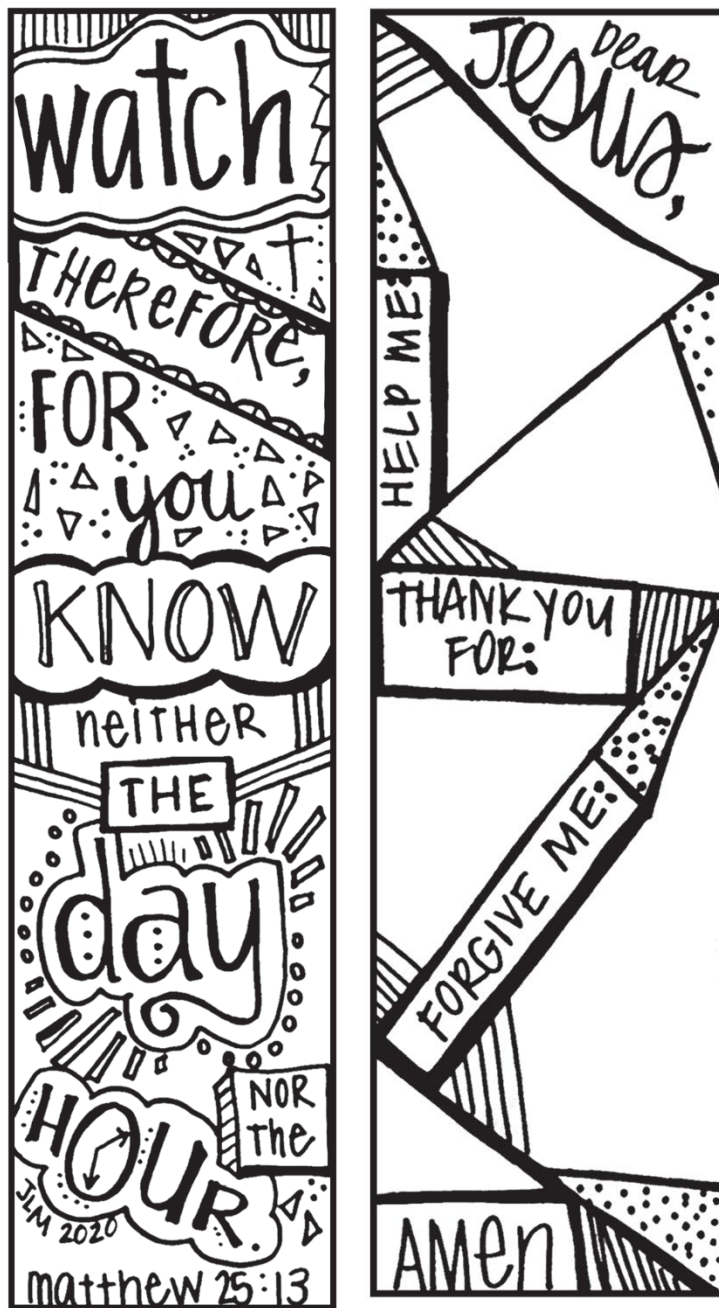 watch
THEREFORE,
FOR
you
KNOW
neiTHeR
THE
day
NOR
The
HOUR.
JLM 2020
matthew 25:13
Dear
Jesus,
HELP ME:
THANK YOU
FOR:
FORGIVE ME:
AMen